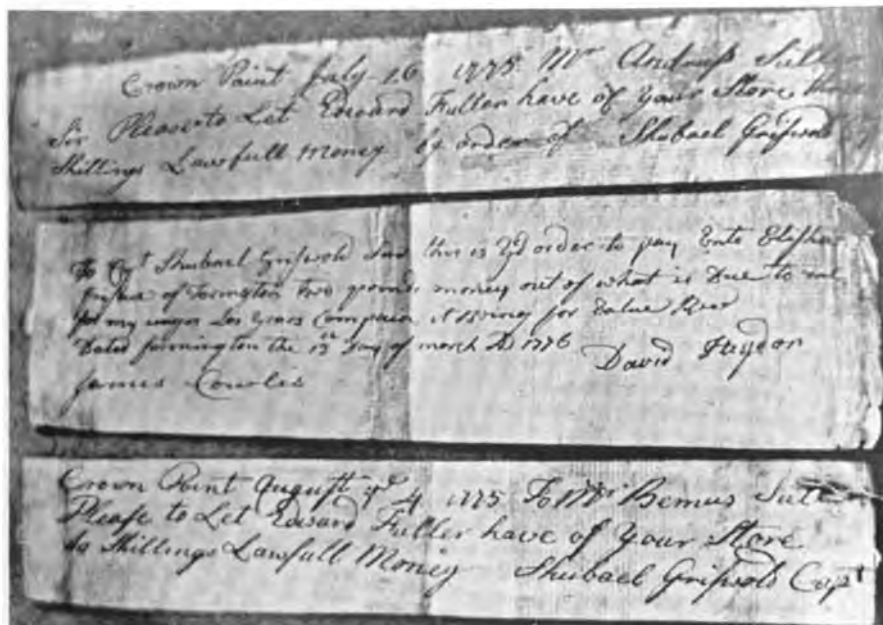 Crown Point July 16 1775 Mr Andruss Sutler
Sir Please to Let Edward Fuller have of your Store three
Shillings Lawfull Money by order of Shubael Griswold
To Cpt Shubael Griswold Sur this is yd order to pay Unto Elisha
of Torington two pounds money out of what is Due to me
for my wages Las Years it being for Value Recd
Dated farmington the 13th Day of march AD 1776
David Haydon
James Cowlis
Crown Point August ye 4 1775 To Mr Bemus Sutler
Please to Let Edward Fuller have of Your Store
Shillings Lawfull Money Shubael Griswold Capt